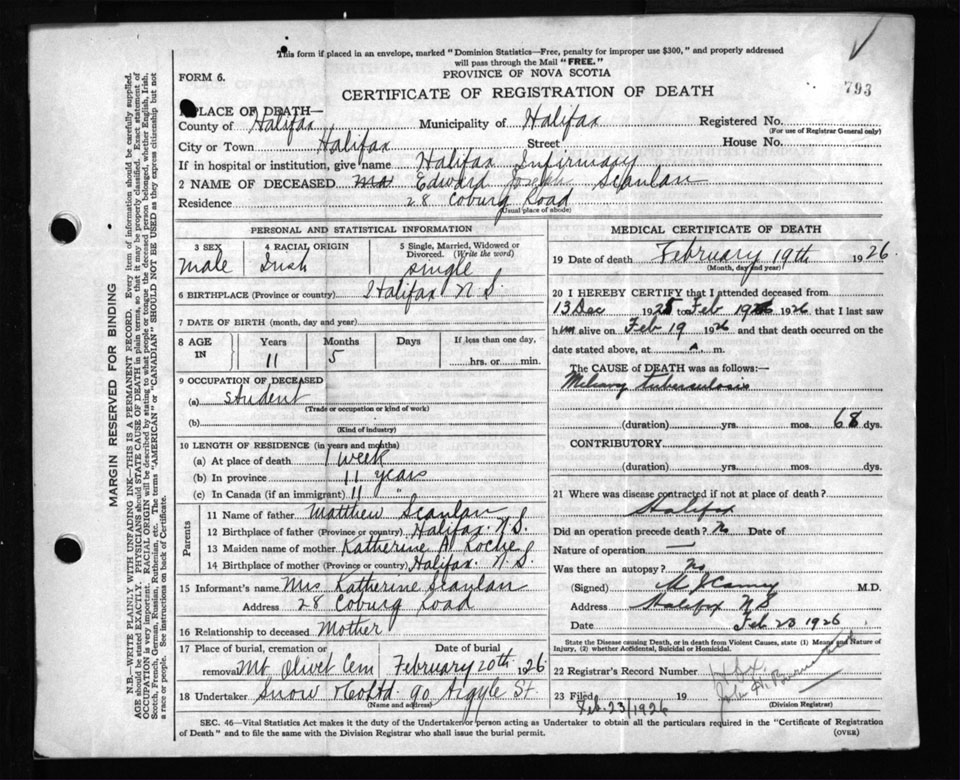 This form if placed in an envelope, marked "Dominion Statistics—Free, penalty for improper use $300," and properly addressed
will pass through the Mail "FREE."
PROVINCE OF NOVA SCOTIA
FORM 6.
CERTIFICATE OF REGISTRATION OF DEATH
793
1 PLACE OF DEATH—
County of Halifax Municipality of Halifax Registered No.
(For use of Registrar General only)
City or Town Halifax Street House No.
If in hospital or institution, give name Halifax Infirmary
2 NAME OF DECEASED Edward Joseph Scanlan
Residence 28 Coburg Road
(Usual place of abode)
PERSONAL AND STATISTICAL INFORMATION
3 SEX 4 RACIAL ORIGIN 5 Single, Married, Widowed or
Divorced. (Write the word)
Male Irish single
6 BIRTHPLACE (Province or country) Halifax N.S.
7 DATE OF BIRTH (month, day and year)
8 AGE IN Years Months Days If less than one day,
11 5 hrs. or min.
9 OCCUPATION OF DECEASED
(a) Student
(Trade or occupation or kind of work)
(b)
(Kind of industry)
10 LENGTH OF RESIDENCE (in years and months)
(a) At place of death 1 week
(b) In province 11 years
(c) In Canada (if an immigrant) 11 "
Parents
11 Name of father Matthew Scanlan
12 Birthplace of father (Province or country) Halifax. N.S.
13 Maiden name of mother Katherine A. Roche
14 Birthplace of mother (Province or country) Halifax. N.S.
15 Informant's name Mrs Katherine Scanlan
Address 28 Coburg Road
16 Relationship to deceased Mother
17 Place of burial, cremation or Date of burial
removal Mt Olivet Cem February 20th 1926
18 Undertaker Snow & Co Ltd. 90 Argyle St.
(Name and address)
MEDICAL CERTIFICATE OF DEATH
19 Date of death February 19th 1926
(Month, day and year)
20 I HEREBY CERTIFY that I attended deceased from
13 Dec 1925 to Feb 1926, that I last saw
him alive on Feb 19 1926 and that death occurred on the
date stated above, at A m.
The CAUSE OF DEATH was as follows:—
Miliary tuberculosis
(duration) yrs. mos. 68 dys.
CONTRIBUTORY
(duration) yrs. mos. dys.
21 Where was disease contracted if not at place of death?
Halifax
Did an operation precede death? No Date of
Nature of operation —
Was there an autopsy? No
(Signed) M.D.
Address Halifax N.S
Date Feb 23 1926
State the Disease causing Death, or in death from Violent Causes, state (1) Means and Nature of
Injury, (2) whether Accidental, Suicidal or Homicidal.
22 Registrar's Record Number
23 Filed Feb. 23/1926 19
(Division Registrar)
SEC. 46—Vital Statistics Act makes it the duty of the Undertaker or person acting as Undertaker to obtain all the particulars required in the "Certificate of Registration
of Death" and to file the same with the Division Registrar who shall issue the burial permit.
(OVER)
MARGIN RESERVED FOR BINDING
N.B.—WRITE PLAINLY WITH UNFADING INK—THIS IS A PERMANENT RECORD. Every item of information should be carefully supplied.
AGE should be stated EXACTLY. PHYSICIANS should STATE CAUSE OF DEATH in plain terms, so that it may be properly classified. Exact statement of
OCCUPATION is very important. RACIAL ORIGIN will be described by stating to what people or tongue the deceased person belonged, whether English, Irish,
Scotch, French, German, Russian, Ruthenian, etc. The terms "AMERICAN" or "CANADIAN" SHOULD NOT BE USED as they express citizenship but not
a race or people. See instructions on back of Certificate.